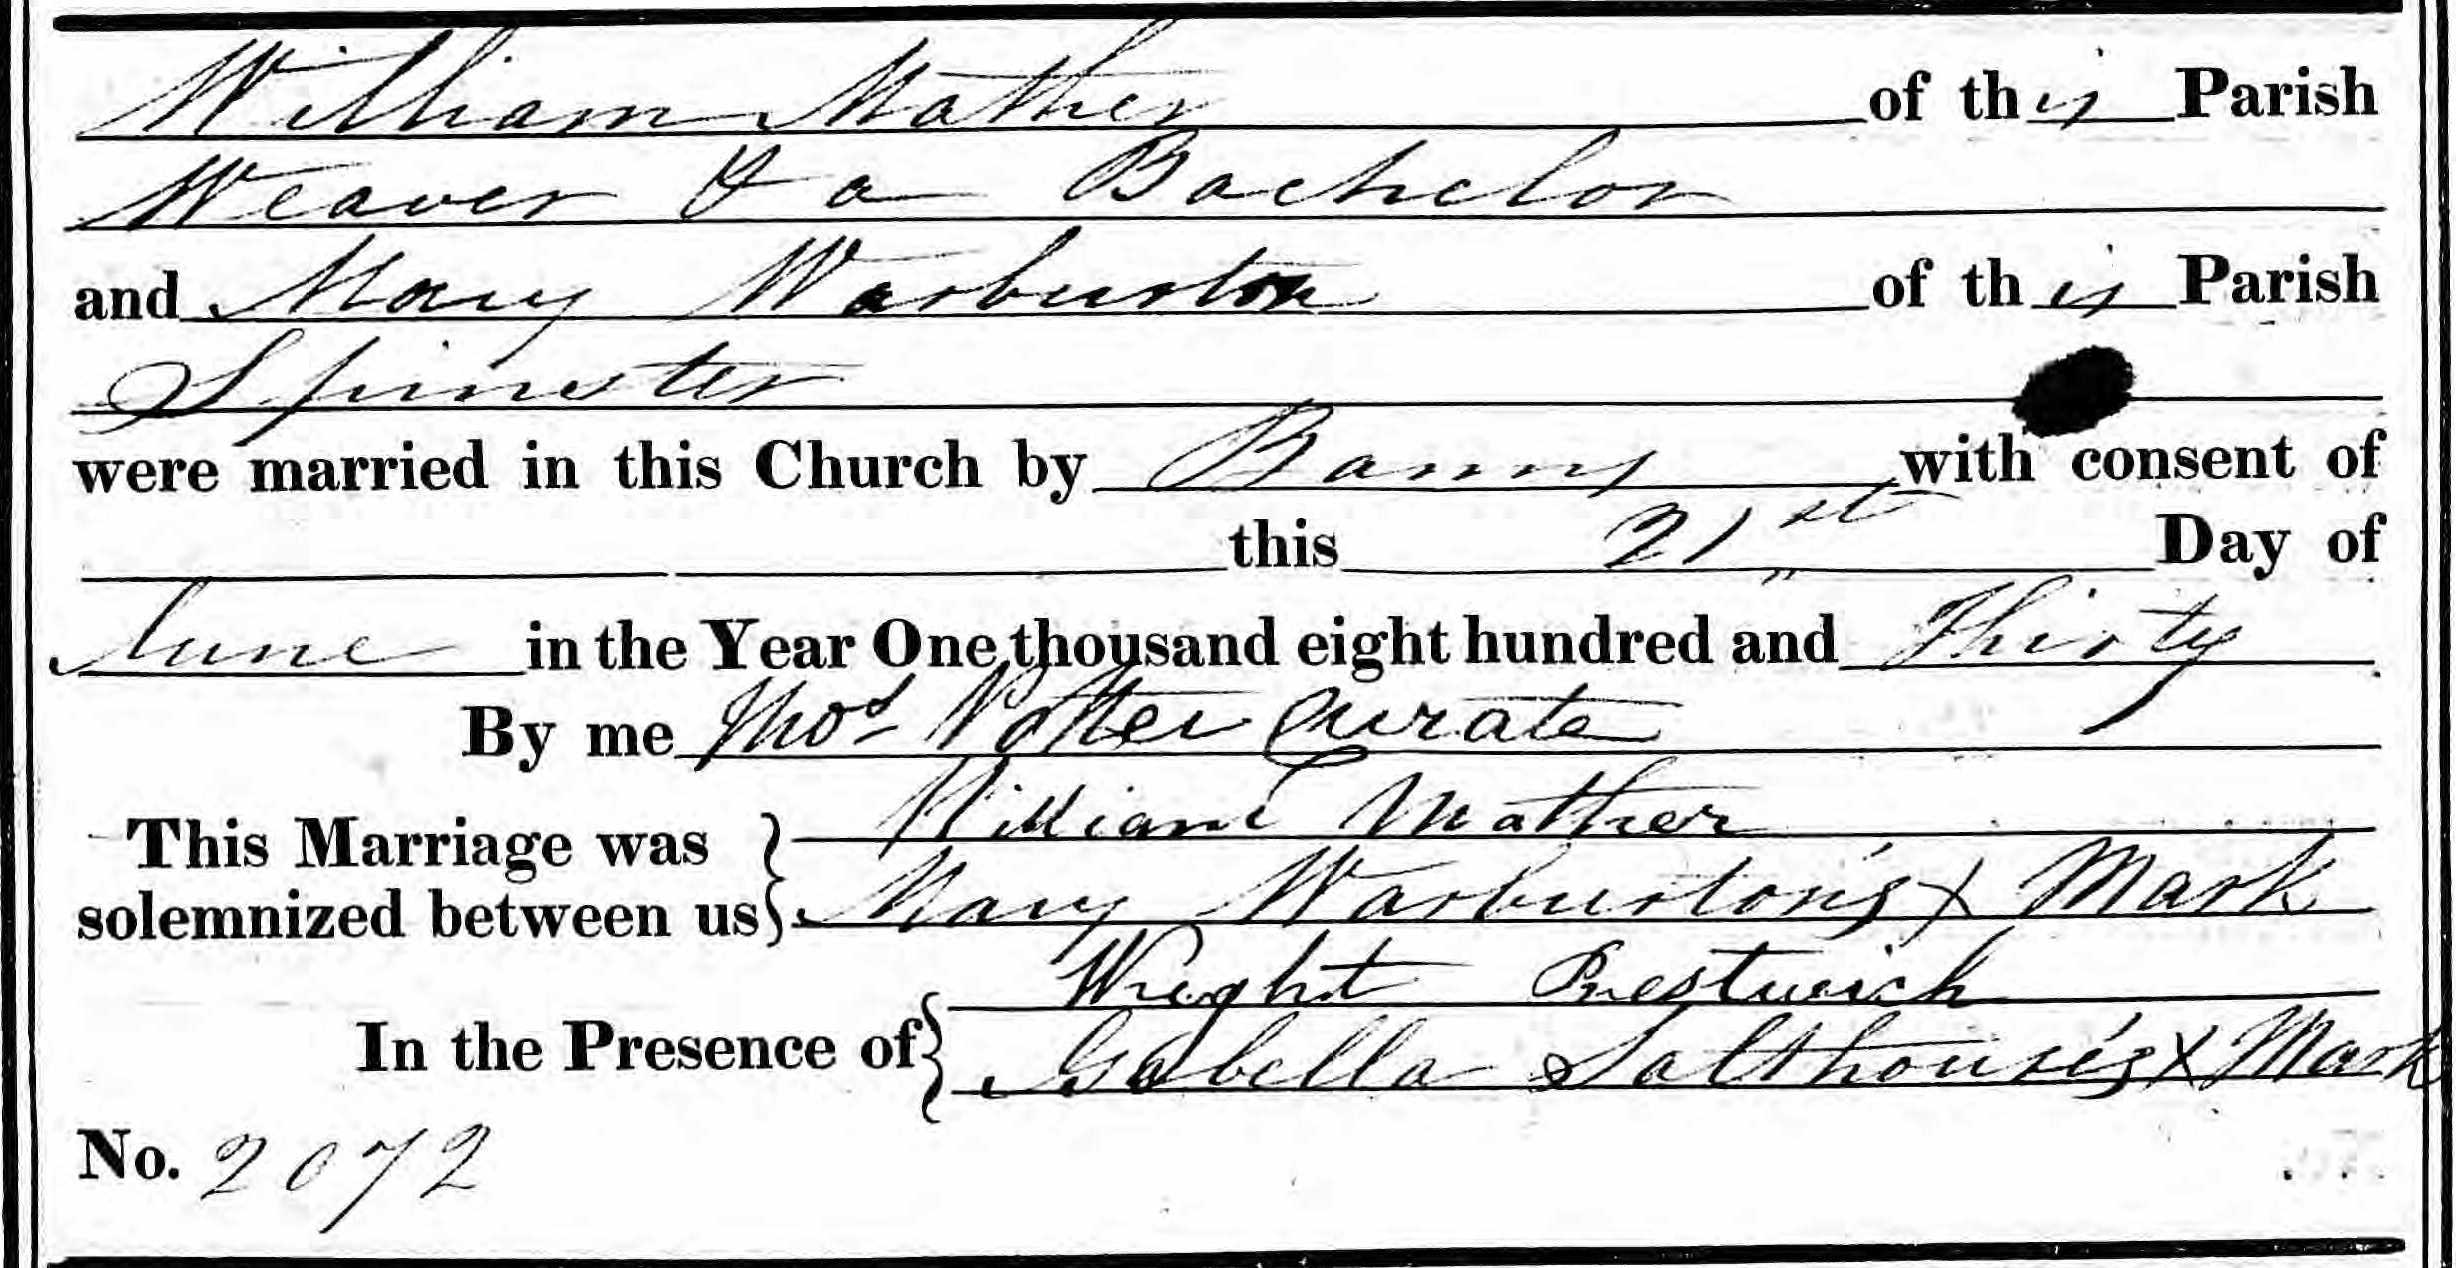 William Mather of this Parish
Weaver & a Bachelor
and Mary Warburton of this Parish
Spinster
were married in this Church by Banns with consent of
this 21st Day of
June in the Year One thousand eight hundred and Thirty
By me Thos Potter Curate
This Marriage was solemnized between us } William Mather
Mary Warburton's X Mark
In the Presence of { Wright Prestwich
Isabella Salthouse's X Mark
No. 2072